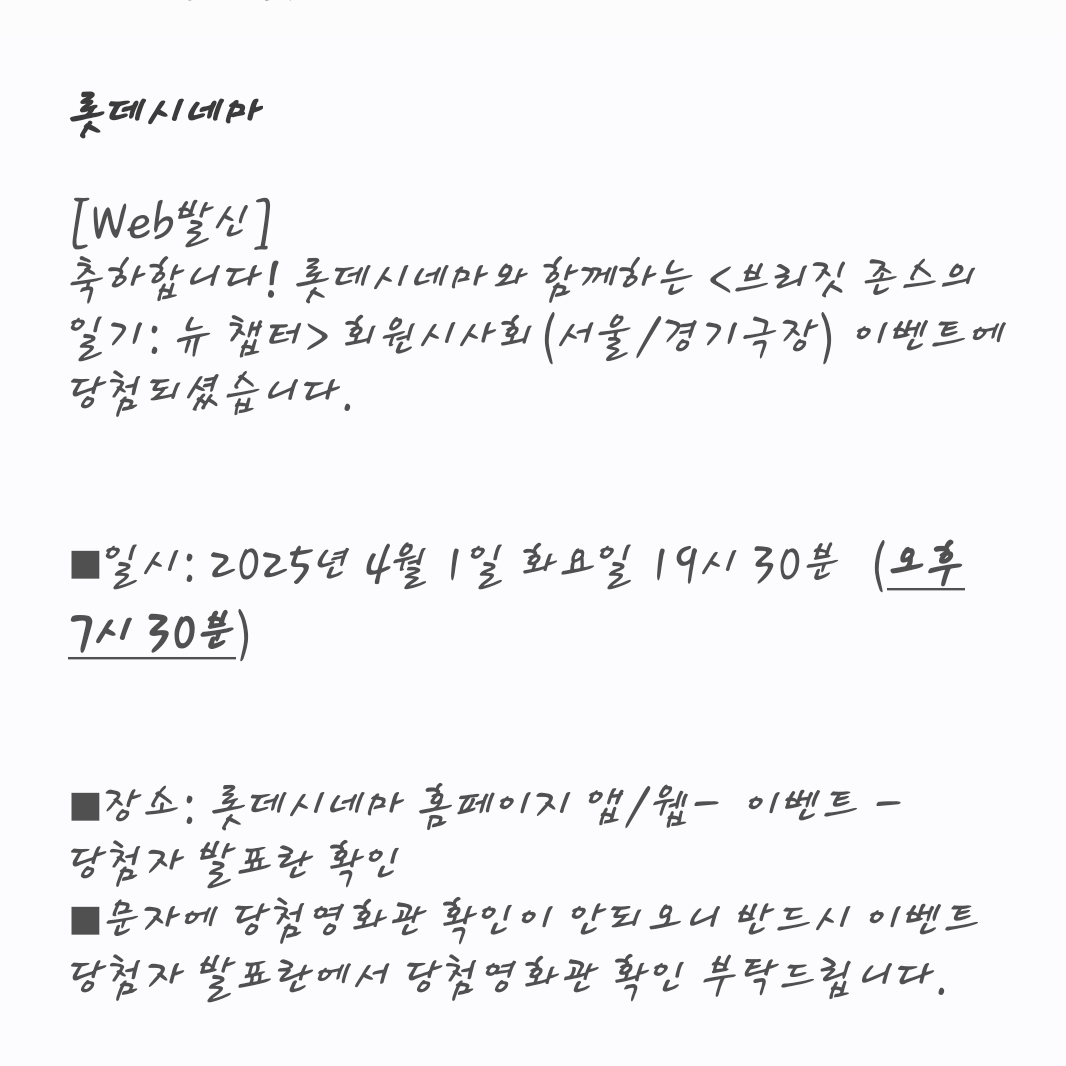 롯데시네마
[Web발신]
축하합니다! 롯데시네마와 함께하는 <브리짓 존스의
일기: 뉴 챕터> 회원시사회(서울/경기극장) 이벤트에
당첨되셨습니다.
■일시: 2025년 4월 1일 화요일 19시 30분 (오후
7시 30분)
■장소: 롯데시네마 홈페이지 앱/웹- 이벤트 -
당첨자 발표란 확인
■문자에 당첨영화관 확인이 안되오니 반드시 이벤트
당첨자 발표란에서 당첨영화관 확인 부탁드립니다.